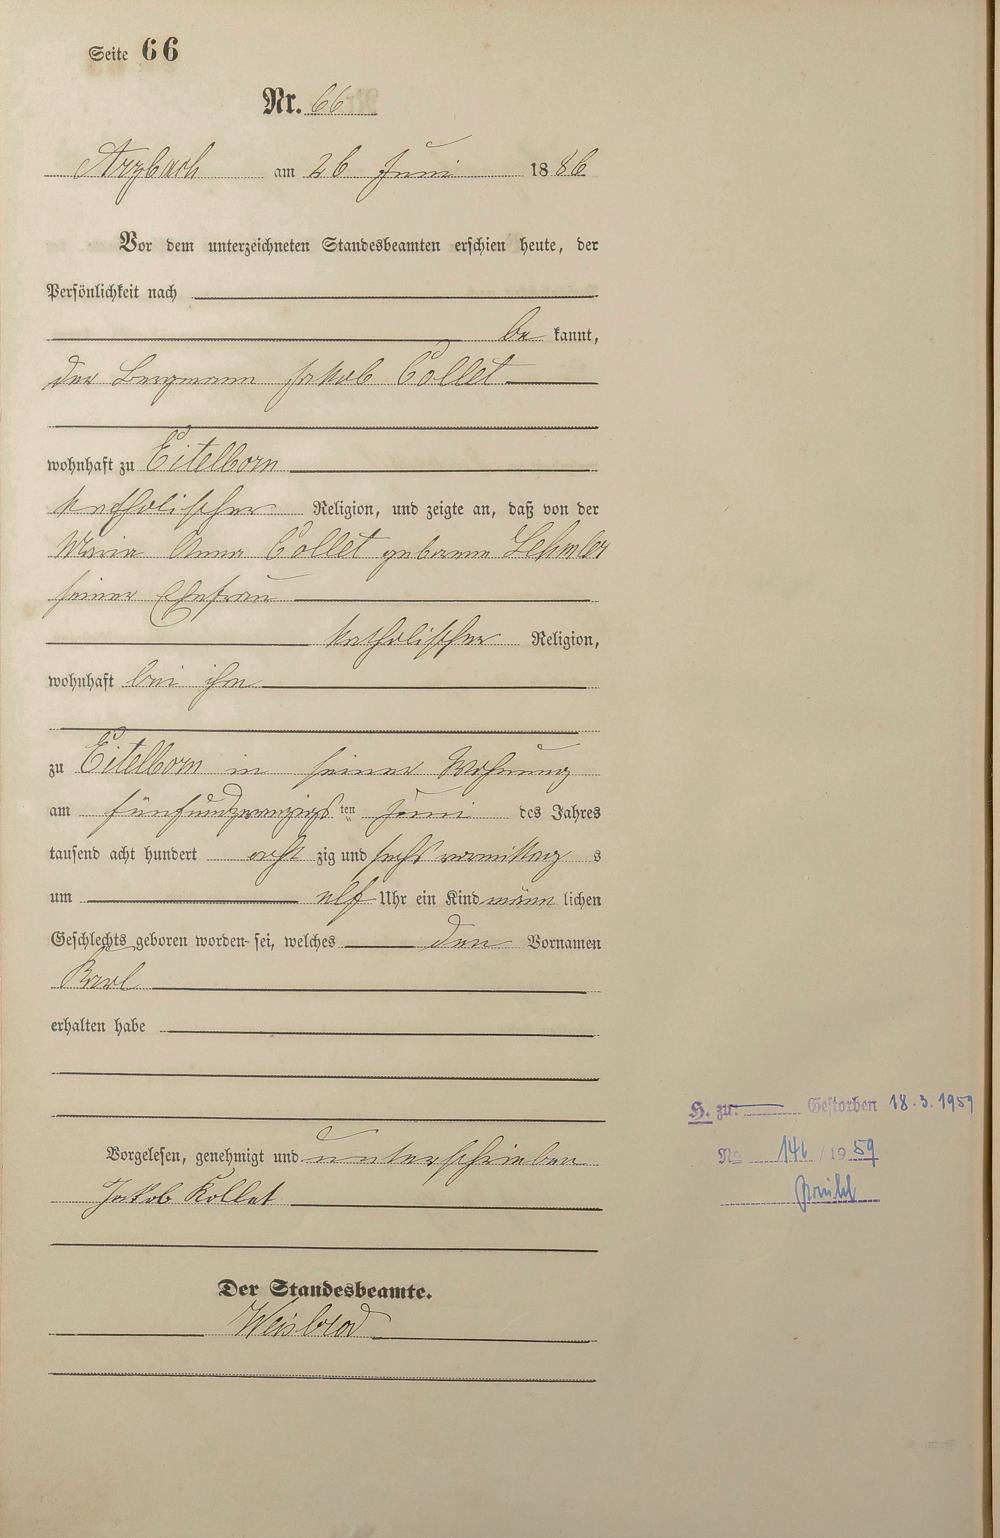 Seite 66
Nr. 66
Arzbach am 26 Juni 1886
Vor dem unterzeichneten Standesbeamten erschien heute, der
Persönlichkeit nach
be kannt,
der Bergmann Jakob Collet
wohnhaft zu Eitelborn
katholischer Religion, und zeigte an, daß von der
Maria Anna Collet geborene Lehmler
seiner Ehefrau
katholischer Religion,
wohnhaft bei ihm
zu Eitelborn in seiner Wohnung
am fünfundzwanzigsten Juni des Jahres
tausend acht hundert acht zig und sechs vormittag s
um elf Uhr ein Kind männ lichen
Geschlechts geboren worden sei, welches den Vornamen
Karl
erhalten habe
Vorgelesen, genehmigt und unterschrieben
Jakob Kollet
Der Standesbeamte.
Weisbrod
H. zu: Gestorben 18.3.1959
No 146 / 1959